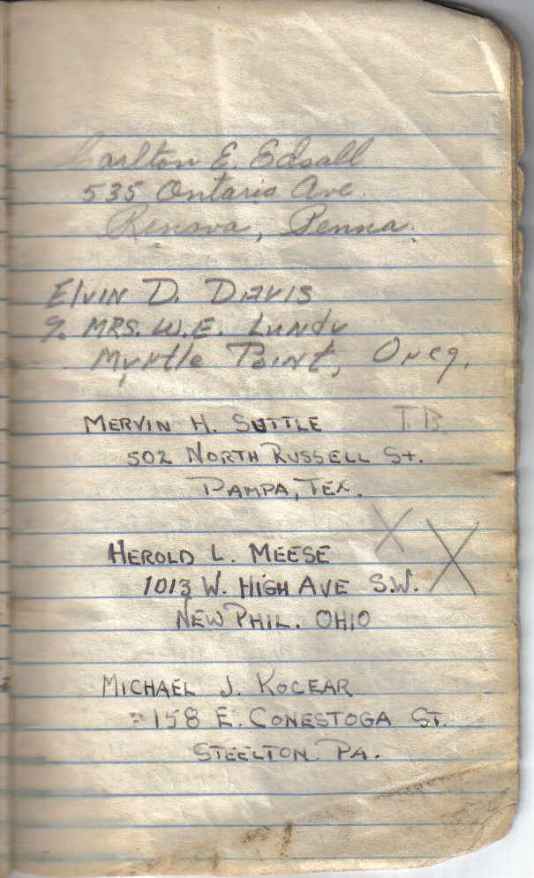 Carlton E. Edsall
535 Ontario Ave.
Renova, Penna.
Elvin D. Davis
% MRS. W.E. Lundy
Myrtle Point, Oreg.
MERVIN H. SUTTLE T.B.
502 NORTH RUSSELL St.
PAMPA, TEX.
HEROLD L. MEESE X X
1013 W. HIGH AVE S.W.
NEW PHIL. OHIO
MICHAEL J. KOCEAR
158 E. CONESTOGA ST.
STEELTON. PA.